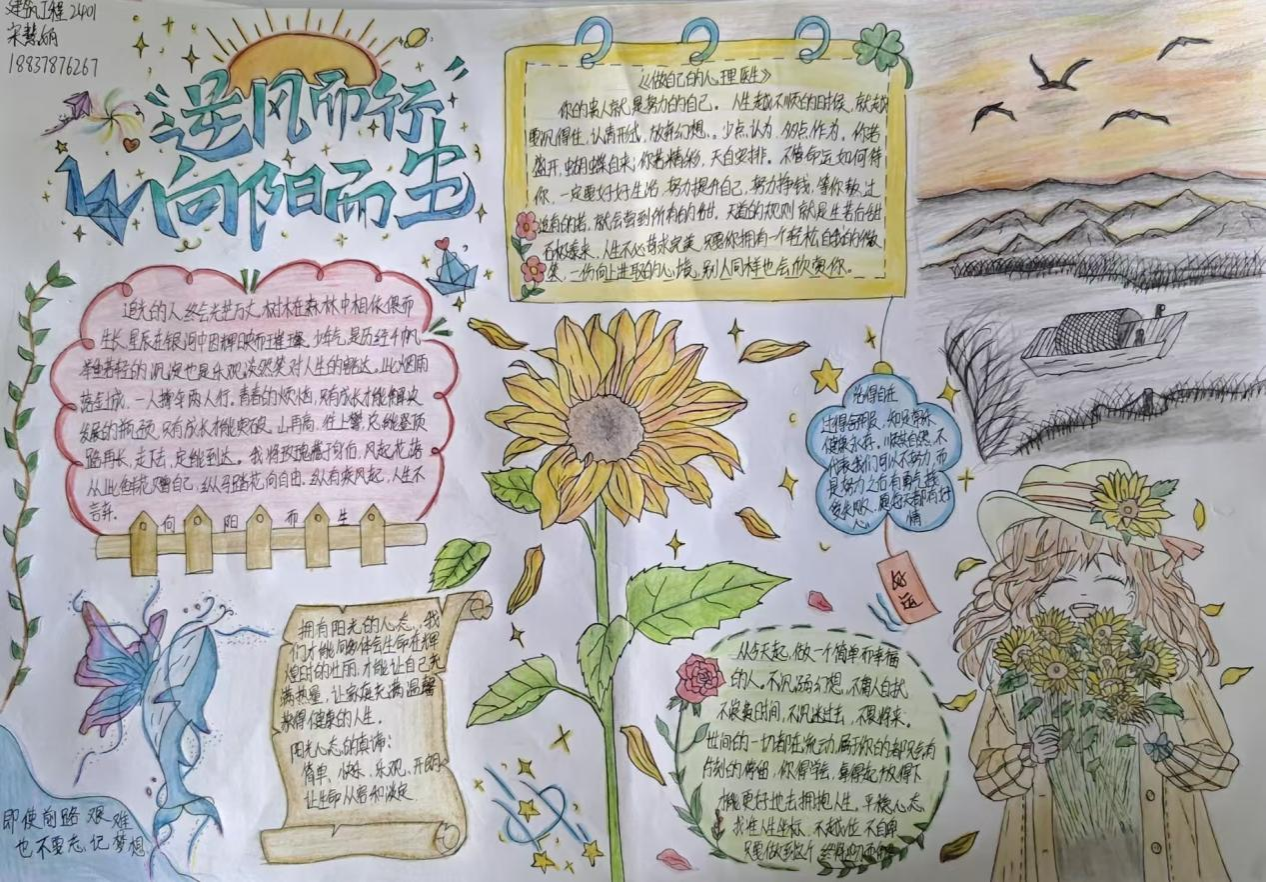 建筑工程2401
宋慧娟
18837876267
逆风而行
向阳而生
《做自己的心理医生》
你的贵人就是努力的自己。人生越不顺的时候，就越
要沉得住，认清形式，放弃幻想、。少点认为，多点作为，你若
盛开，蝴蝶自来，你若精彩，天自安排。不管命运如何待
你，一定要好好生活，努力提升自己，努力挣钱，等你熬过
所有的苦，就会尝到所有的甜，天道的规则就是先苦后甜
否极泰来，人生不必苛求完美，只要你拥有一个轻松自在的微
笑，一份向上进取的心境，别人同样也会欣赏你。
追光的人终会光芒万丈，树木在森林中相依偎而
生长，星辰在银河中因辉映而璀璨，少年气，是历经千帆
举重若轻的沉淀也是乐观淡然笑对人生的豁达。此烟雨
落空城，一人撑伞两人行。青春的烦恼，只有成长才能解决
发展的瓶颈，只有成长才能突破，山再高，往上攀，总能登顶
路再长，走下去，定能到达。我将玫瑰藏于身后，风起花落
从此鲜花赠自己，纵马踏花向自由。纵有疾风起，人生不
言弃。
向阳而生
觉得自在
过得舒服，知足常乐
健康永存。顺其自然，不
代表我们可以不努力，而
是努力之后有勇气接
愿每天都有好
心情
好运
拥有阳光的心态，我
们才能领略体会生命在辉
煌时的壮丽，才能让自己充
满热量，让家庭充满温馨
赢得健康的人生。
阳光心态的真谛：
简单、快乐、乐观、开朗
让生命从容和淡定
从今天起，做一个简单而幸福
的人。不沉溺幻想，不庸人自扰，
不浪费时间，不沉迷过去，不畏将来。
世间的一切都在流动，属于你的都只有
片刻的停留，你得学会，拿得起放得下
才能更好地去拥抱人生，平稳心态
找准人生坐标，不越位，不自卑
只要做到这个
即使前路艰难
也不要忘记梦想